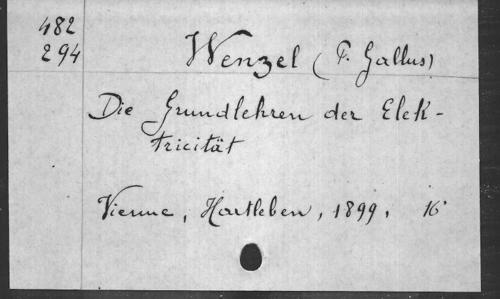 482
294
Wenzel (P. Gallus)
Die Grundlehren der Elek-
tricität
Vienne, Hartleben, 1899. 16°